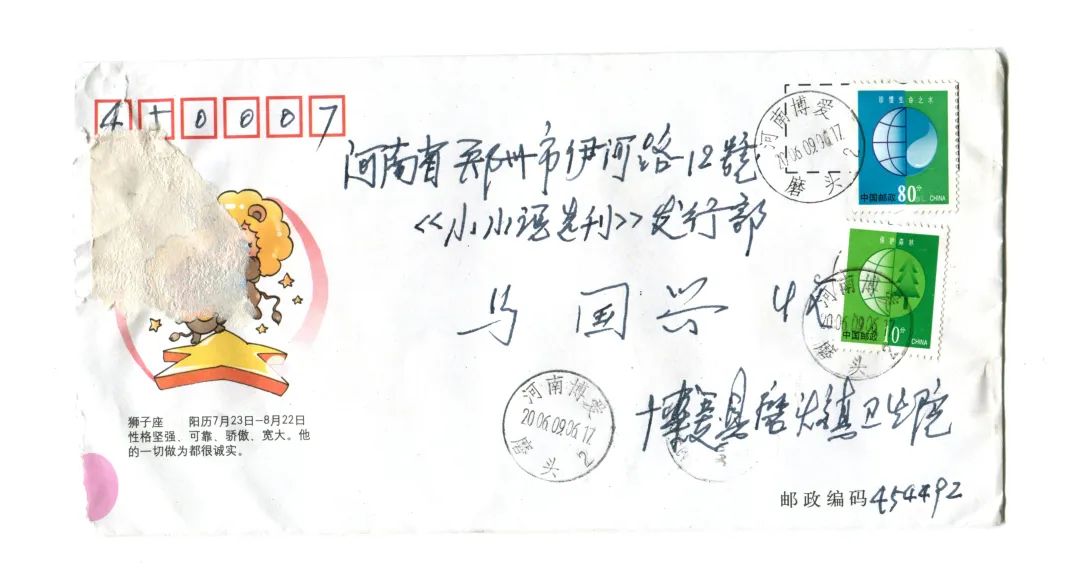 450007
河南省郑州市伊河路12號
《小小说选刊》发行部
马国兴 收
博爱县磨头镇卫生院
邮政编码454492
狮子座 阳历7月23日-8月22日
性格坚强、可靠、骄傲、宽大。他
的一切做为都很诚实。
珍惜生命之水
中国邮政 80分 CHINA
保护森林
中国邮政 10分 CHINA
河南博爱
2006.09.06.17
磨头 2
河南博爱
2006.09.06.17
磨头 2
河南博爱
2006.09.06.17
磨头 2